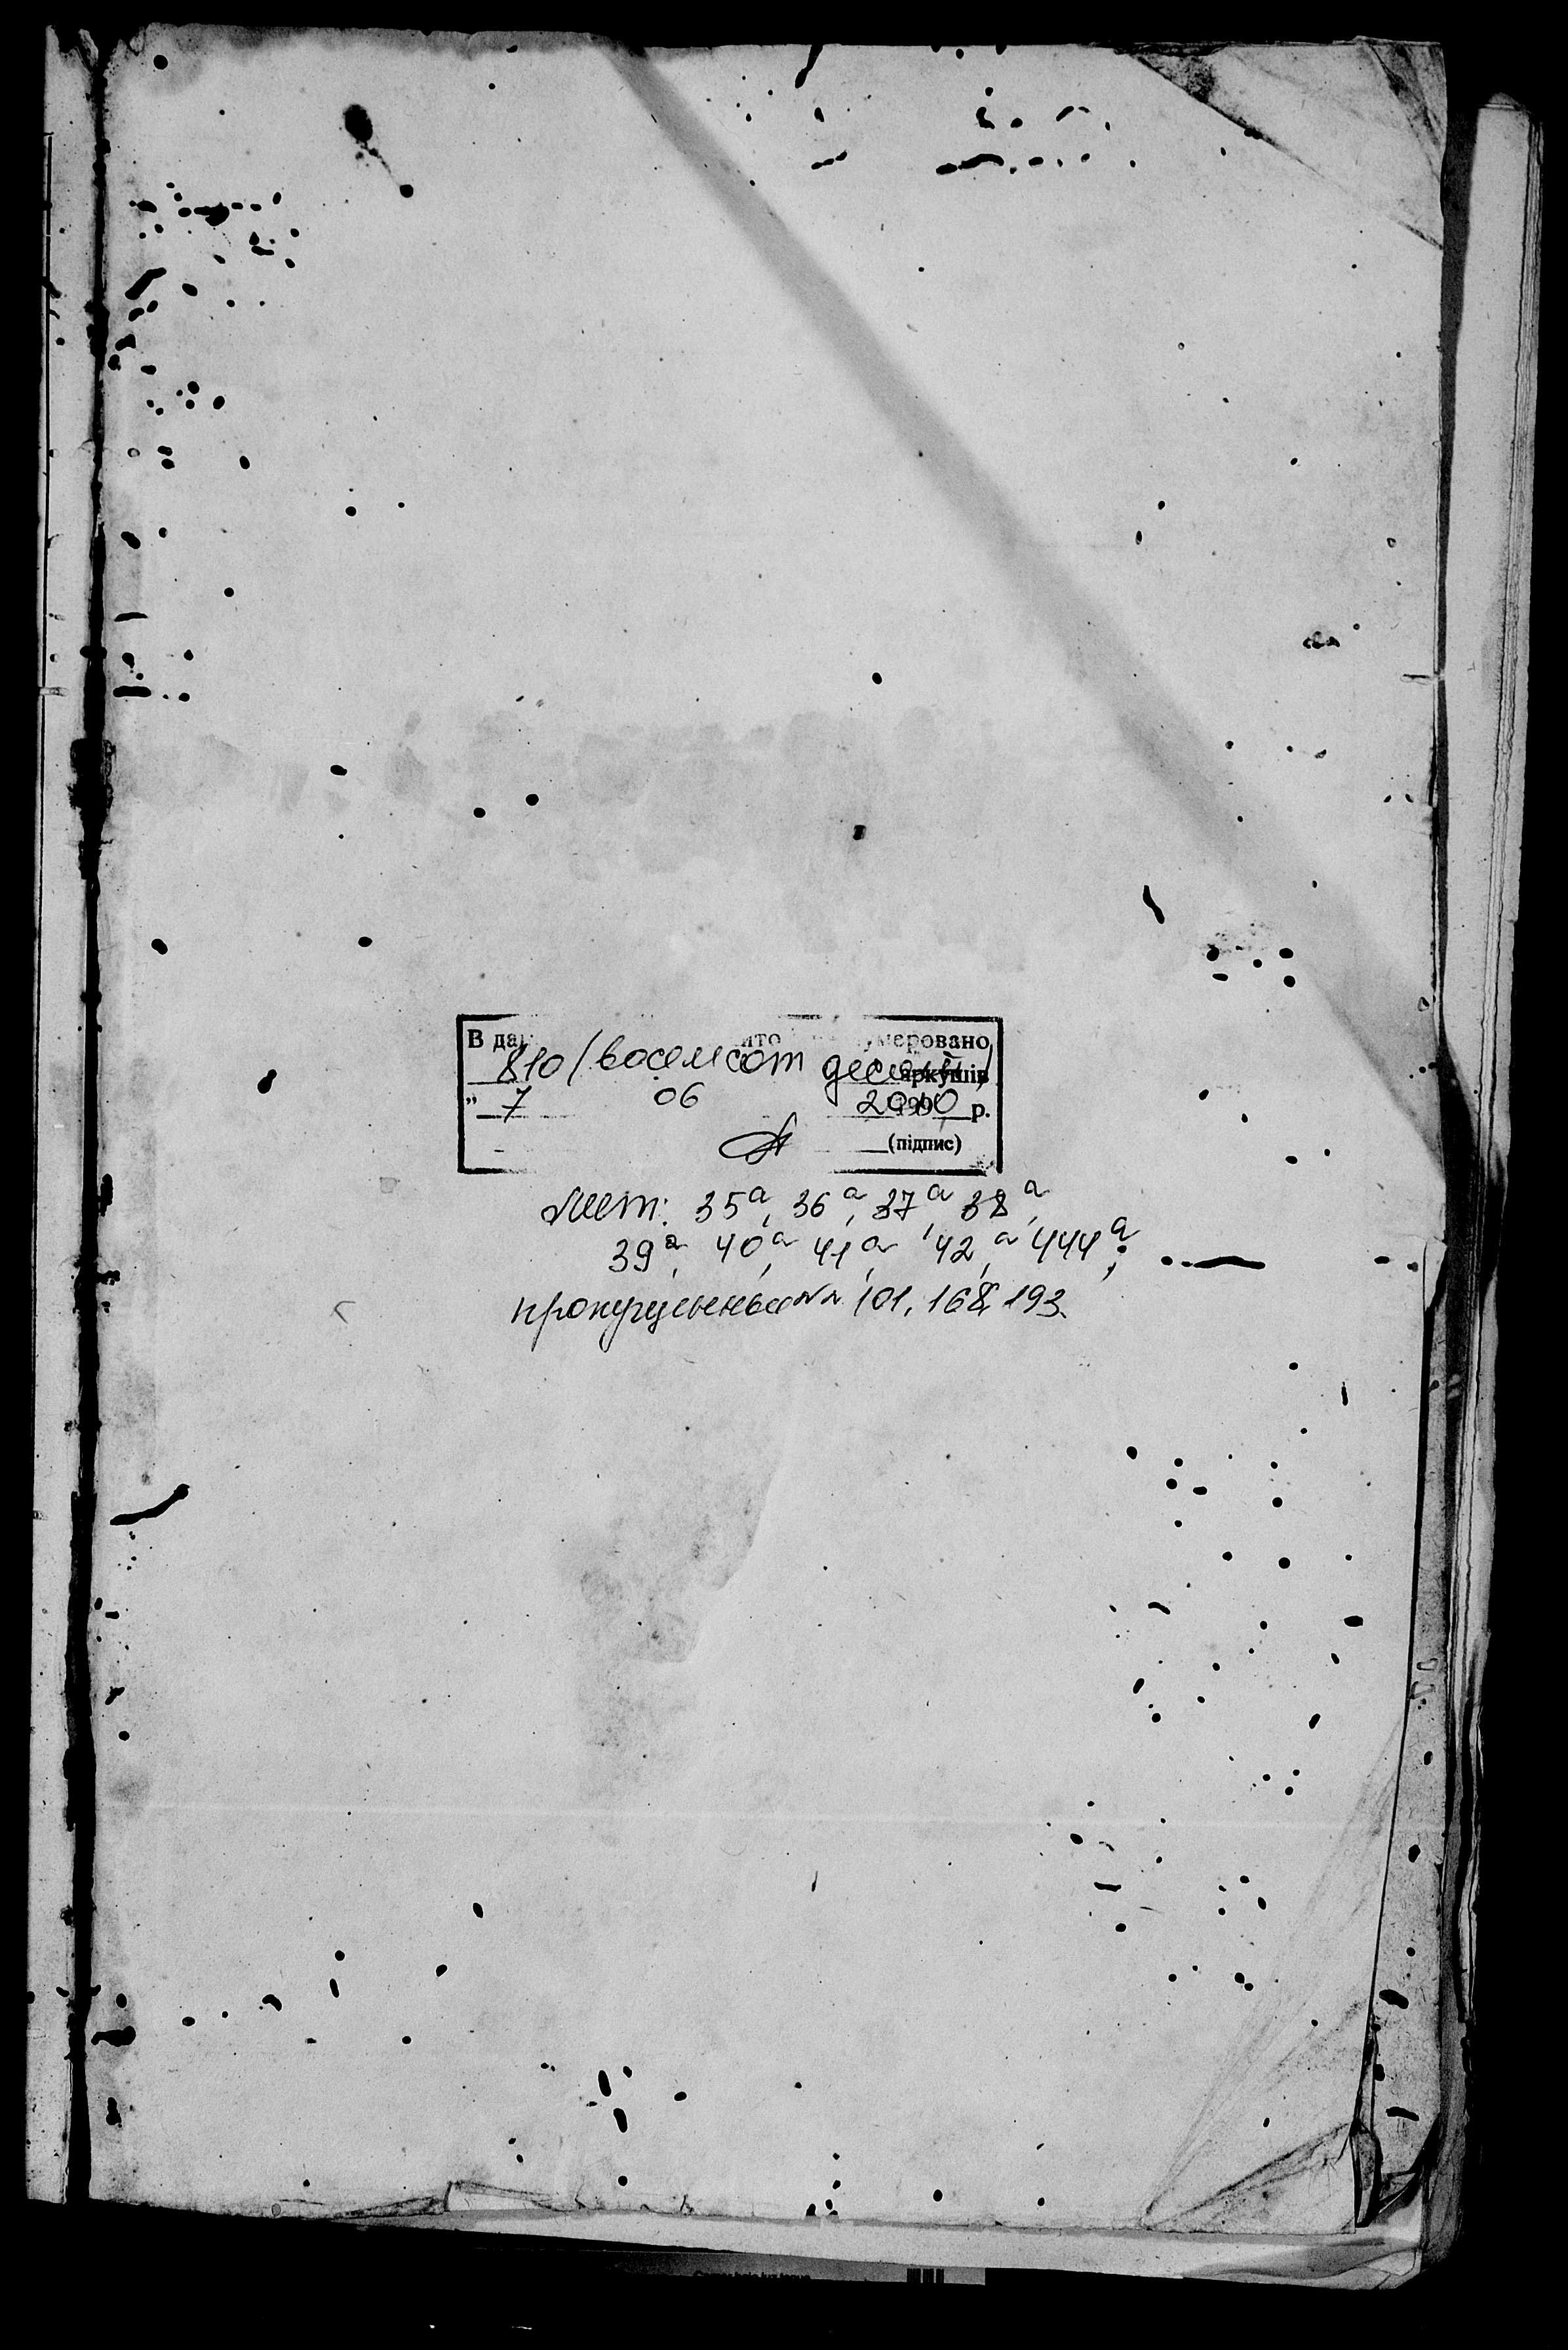 В да ито умеровано
810 (восемсот десять) аркушів
" 7 06 2000 р.
(підпис)
Лит: 35а, 36а, 37а, 38а,
39а, 40а, 41а, 42а, 444а;
пропущенные №№ 101, 168, 193.